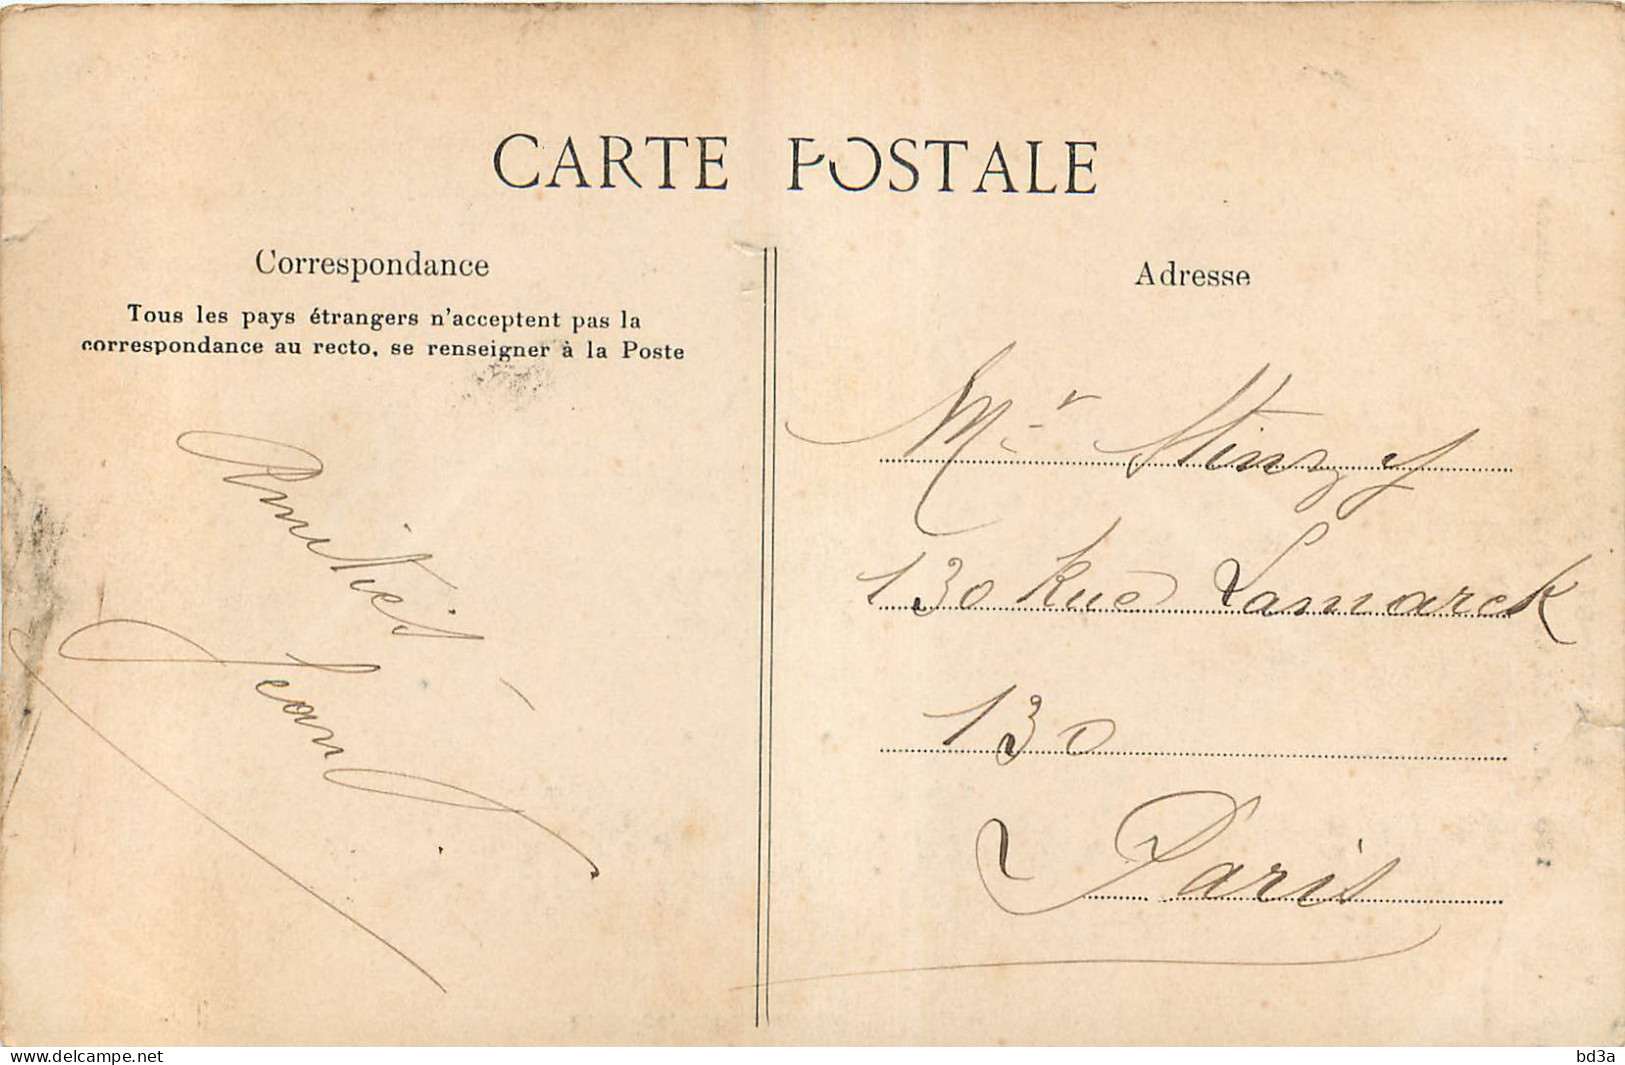 CARTE POSTALE
Correspondance
Tous les pays étrangers n'acceptent pas la
correspondance au recto, se renseigner à la Poste
Amitiés
Jean
Adresse
Mr Stinzy
130 Rue Lamarck
130
Paris
www.delcampe.net
bd3a